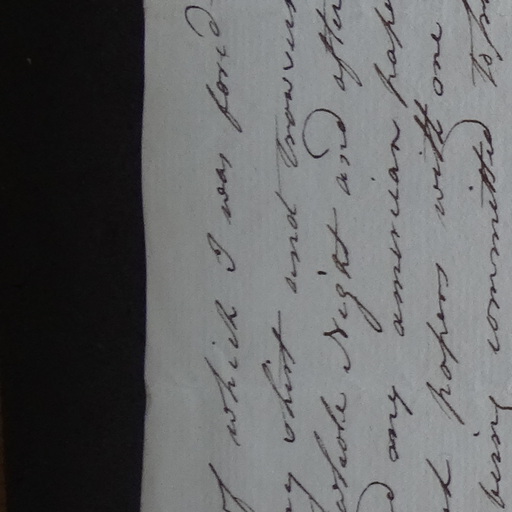 of which I was
my shirt and
whole Night and after
my american pape
papers with one
being committed to